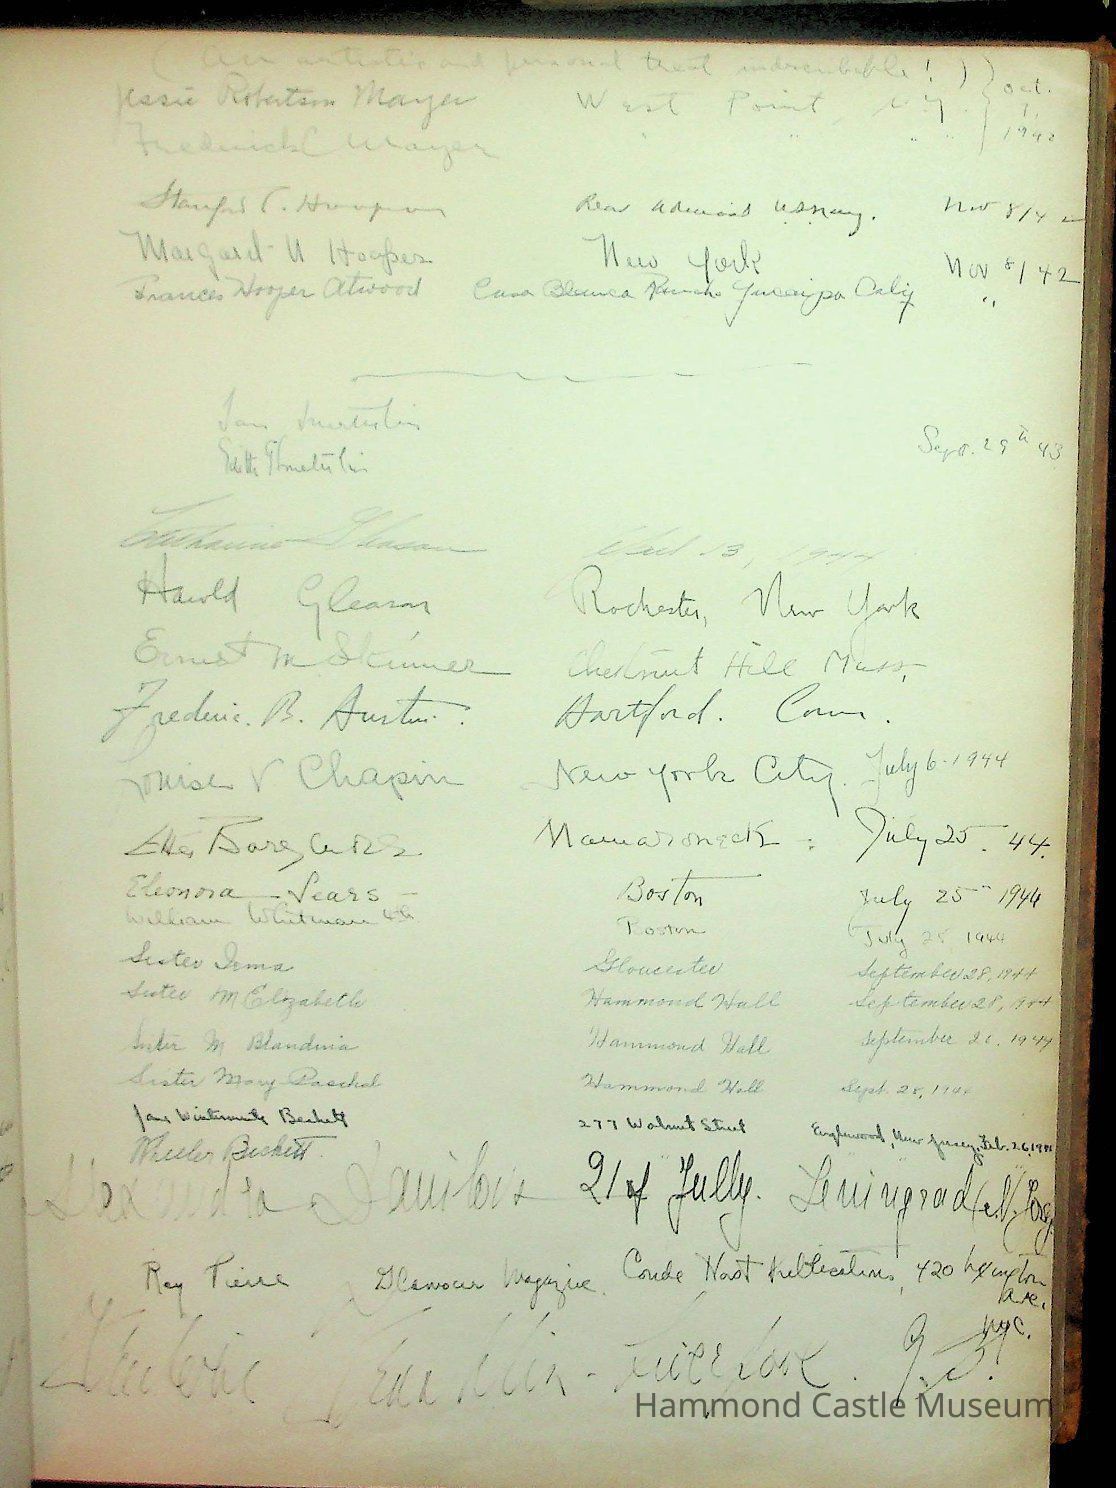 ( An artistic and personal treat indescribable ! )
Jessie Robertson Mayer West Point, N.Y. Oct. 7, 1942
Frederick C Mayer " " " "
Stanford C. Hooper Rear Admiral U.S. Navy. Nov 8/42
Margaret N Hooper New York Nov 8/42
Frances Hooper Atwood Casa Blanca Rancho Yucaipa Calif "
Sept. 29th 43
Catharine Gleason 13, 1944
Harold Gleason Rochester, New York
Ernest M Skinner Chestnut Hill Mass,
Frederic. B. Austin. Hartford. Conn.
Louise V Chapin New York City. July 6-1944
Mamaroneck July 25. 44.
Eleonora Sears Boston July 25" 1944
William Whitman 4th Boston July 25 1944
Sister Irma Gloucester September 28, 1944
Sister M Elizabeth Hammond Hall September 28, 1944
Sister M Blandina Hammond Hall September 28, 1944
Sister Mary Paschal Hammond Hall Sept. 28, 1944
Beckett 277 Walnut Street Englewood, New Jersey, Feb. 26,
Wheeler Beckett
Alexandra Danilova 21 of Jully. Leningrad
Ray Pierre Glamour Magazine, Conde Nast Publications, 420 Lexington
Ave.
NYC.
Frederic Franklin
Hammond Castle Museum